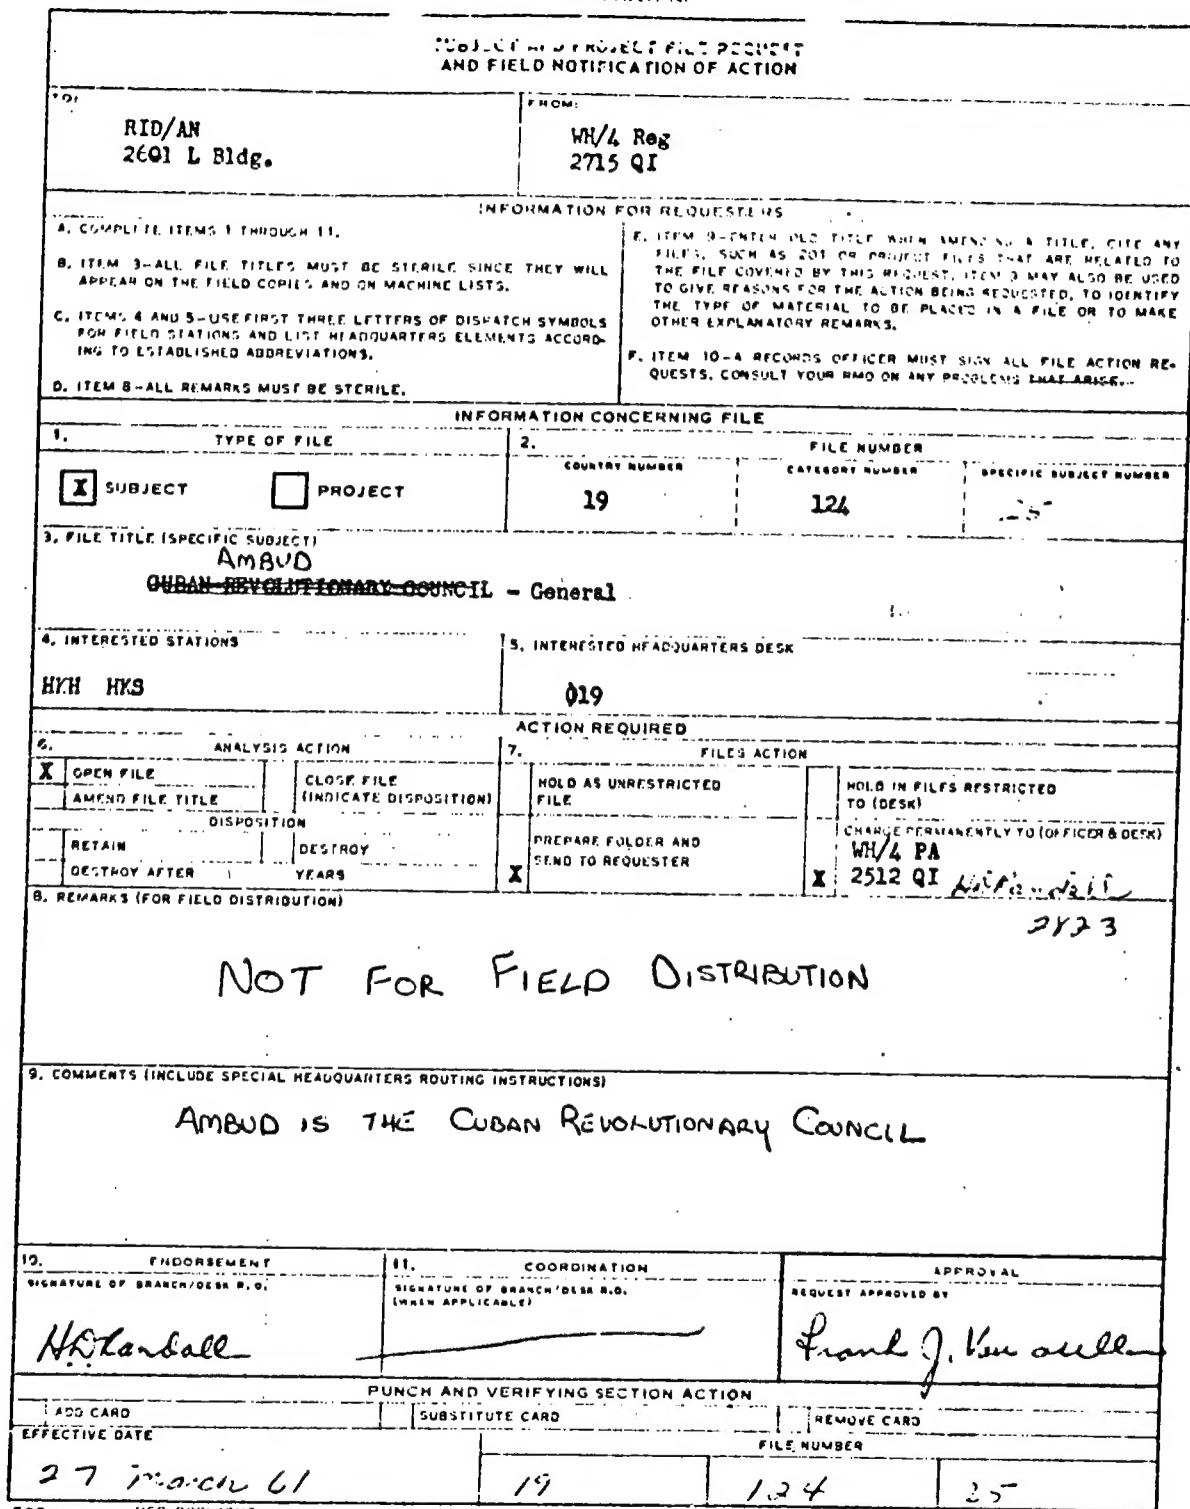 SUBJECT AND PROJECT FILE REQUEST
AND FIELD NOTIFICATION OF ACTION
TO:
RID/AN
2601 L Bldg.
FROM:
WH/4 Reg
2715 QI
INFORMATION FOR REQUESTERS
A. COMPLETE ITEMS 1 THROUGH 11.
B. ITEM 3-ALL FILE TITLES MUST BE STERILE SINCE THEY WILL
APPEAR ON THE FIELD COPIES AND ON MACHINE LISTS.
C. ITEMS 4 AND 5-USE FIRST THREE LETTERS OF DISPATCH SYMBOLS
FOR FIELD STATIONS AND LIST HEADQUARTERS ELEMENTS ACCORD-
ING TO ESTABLISHED ABBREVIATIONS.
D. ITEM 8-ALL REMARKS MUST BE STERILE.
E. ITEM 9-ENTER OLD TITLE WHEN AMENDING A TITLE, CITE ANY
FILES, SUCH AS 201 OR PROJECT FILES THAT ARE RELATED TO
THE FILE COVERED BY THIS REQUEST. ITEM 9 MAY ALSO BE USED
TO GIVE REASONS FOR THE ACTION BEING REQUESTED, TO IDENTIFY
THE TYPE OF MATERIAL TO BE PLACED IN A FILE OR TO MAKE
OTHER EXPLANATORY REMARKS.
F. ITEM 10-A RECORDS OFFICER MUST SIGN ALL FILE ACTION RE-
QUESTS. CONSULT YOUR RMO ON ANY PROBLEMS THAT ARISE.
INFORMATION CONCERNING FILE
1. TYPE OF FILE
X SUBJECT PROJECT
2. FILE NUMBER
COUNTRY NUMBER CATEGORY NUMBER SPECIFIC SUBJECT NUMBER
19 124 25
3. FILE TITLE (SPECIFIC SUBJECT)
AMBUD
CUBAN REVOLUTIONARY COUNCIL - General
4. INTERESTED STATIONS
HKH HKS
5. INTERESTED HEADQUARTERS DESK
019
ACTION REQUIRED
6. ANALYSIS ACTION
X OPEN FILE
AMEND FILE TITLE
CLOSE FILE
(INDICATE DISPOSITION)
DISPOSITION
RETAIN DESTROY
DESTROY AFTER YEARS
7. FILES ACTION
HOLD AS UNRESTRICTED
FILE
HOLD IN FILES RESTRICTED
TO (DESK)
PREPARE FOLDER AND
X SEND TO REQUESTER
CHARGE PERMANENTLY TO (OFFICER & DESK)
WH/4 PA
X 2512 QI
2823
8. REMARKS (FOR FIELD DISTRIBUTION)
NOT FOR FIELD DISTRIBUTION
9. COMMENTS (INCLUDE SPECIAL HEADQUARTERS ROUTING INSTRUCTIONS)
AMBUD IS THE CUBAN REVOLUTIONARY COUNCIL
10. ENDORSEMENT
SIGNATURE OF BRANCH/DESK R.O.
HD Randall
11. COORDINATION
SIGNATURE OF BRANCH/DESK R.O.
(WHEN APPLICABLE)
APPROVAL
REQUEST APPROVED BY
Frank J.
PUNCH AND VERIFYING SECTION ACTION
ADD CARD SUBSTITUTE CARD REMOVE CARD
EFFECTIVE DATE
27 March 61
FILE NUMBER
19 124 25